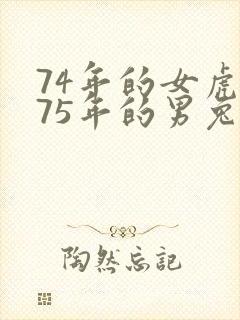 74年的女虎
75年的男兔
陶然忘記